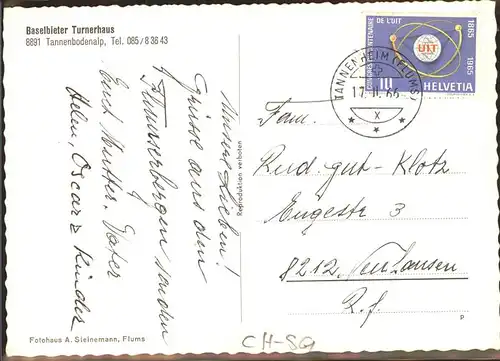 Baselbieter Turnerhaus
8891 Tannenbodenalp, Tel. 085/8 36 43
Unsere Lieben!
Grüsse aus den
Flumserbergen senden
Euch Mutter, Vater
Helen, Oscar & Kinder
Fotohaus A. Steinemann, Flums
Reproduktion verboten
CONFERENCE CENTENAIRE DE L'UIT
1865
1965
UIT
10
HELVETIA
TANNENHEIM (FLUMS)
17. II. 66
X
Fam.
Rud. Gut-Klotz
Engestr 3
8212 Neuhausen
R.f.
P
CH-SG